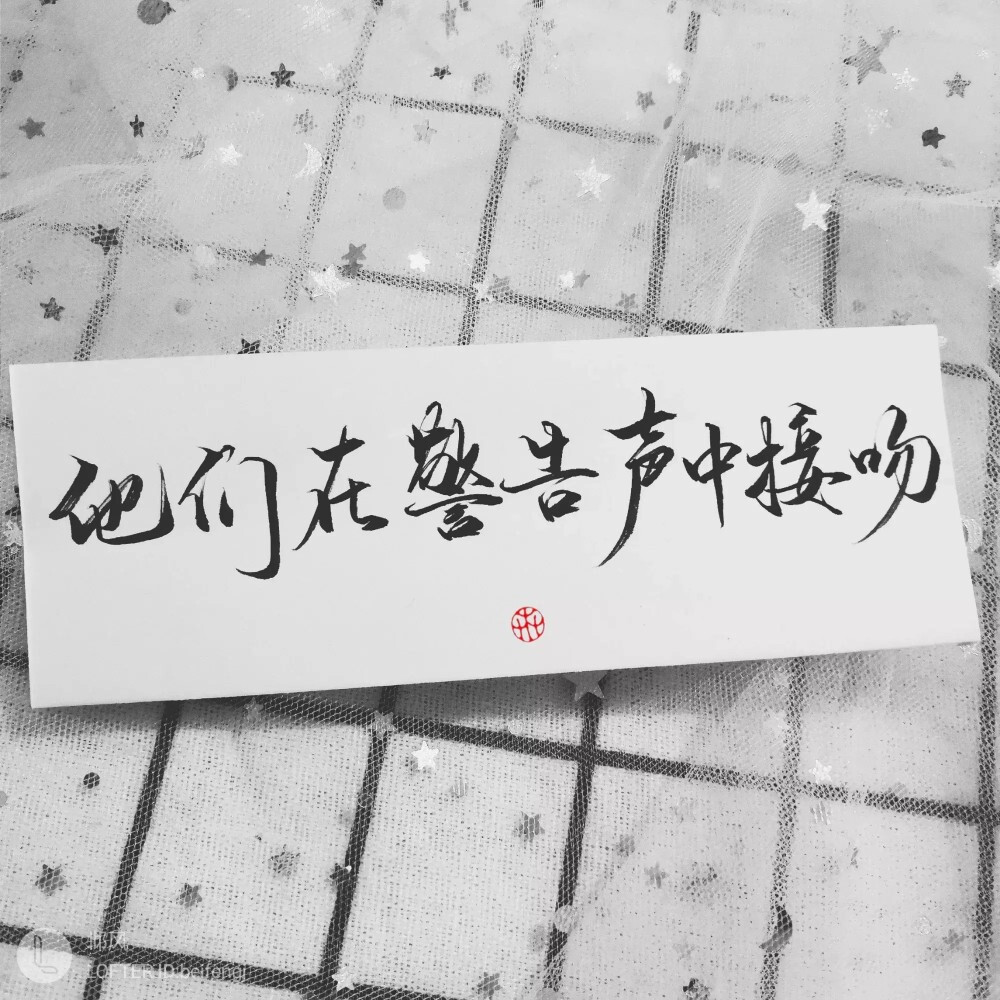 他们在警告声中接吻
LOFTER ID:beifengj